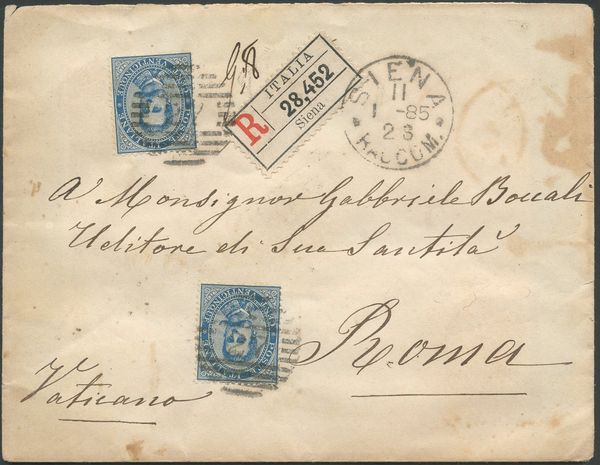 POSTE ITALIANE
9,8
R
ITALIA
28.452
Siena
SIENA
11
1 -85
2 S
RACCOM.
A Monsignor Gabbriele Boccali
Uditore di Sua Santità
Roma
Vaticano